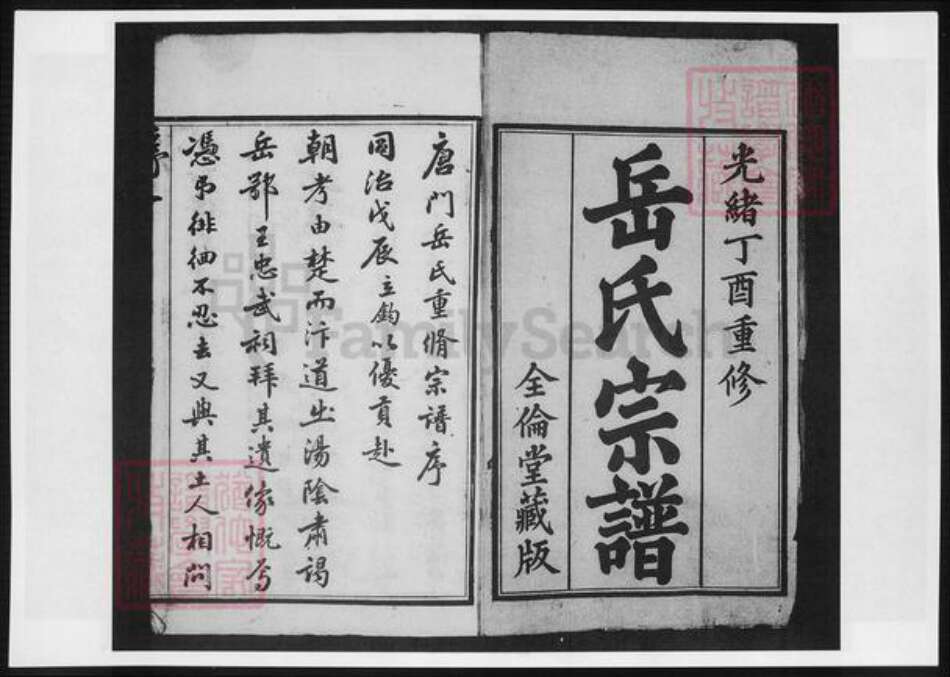 光緒丁酉重修
岳氏宗譜
全倫堂藏版
唐門岳氏重脩宗譜序
同治戊辰立鈞以優貢赴
朝考由楚而汴道出湯陰肅謁
岳鄂王忠武祠拜其遺像慨焉
憑弔徘徊不忍去又與其土人相問
FamilySearch